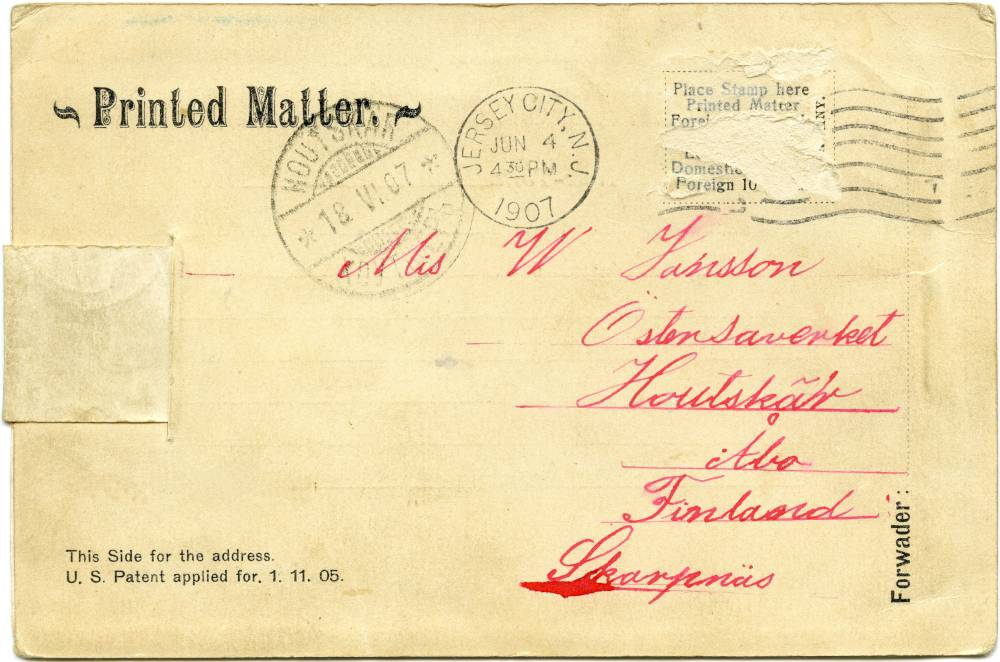 Printed Matter.
HOUTSKÄR
18 VI 07
JERSEY CITY, N.J.
JUN 4
4 30 PM
1907
Place Stamp here
Printed Matter
Domestic
Foreign 10
ANY.
Mis W Jansson
Östersaverket
Houtskär
Åbo
Finland
Skarpnäs
Forwader:
This Side for the address.
U. S. Patent applied for. 1. 11. 05.